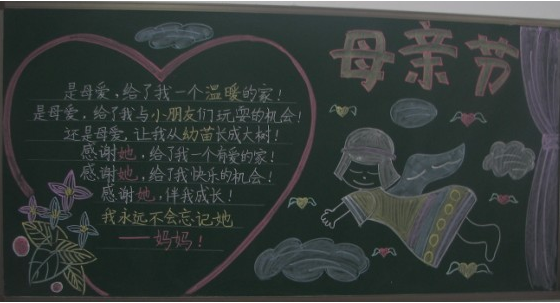 母亲节
是母爱，给了我一个温暖的家！
是母爱，给了我与小朋友们玩耍的机会！
还是母爱，让我从幼苗长成大树！
感谢她，给了我一个有爱的家！
感谢她，给了我快乐的机会！
感谢她，伴我成长！
我永远不会忘记她
——妈妈！